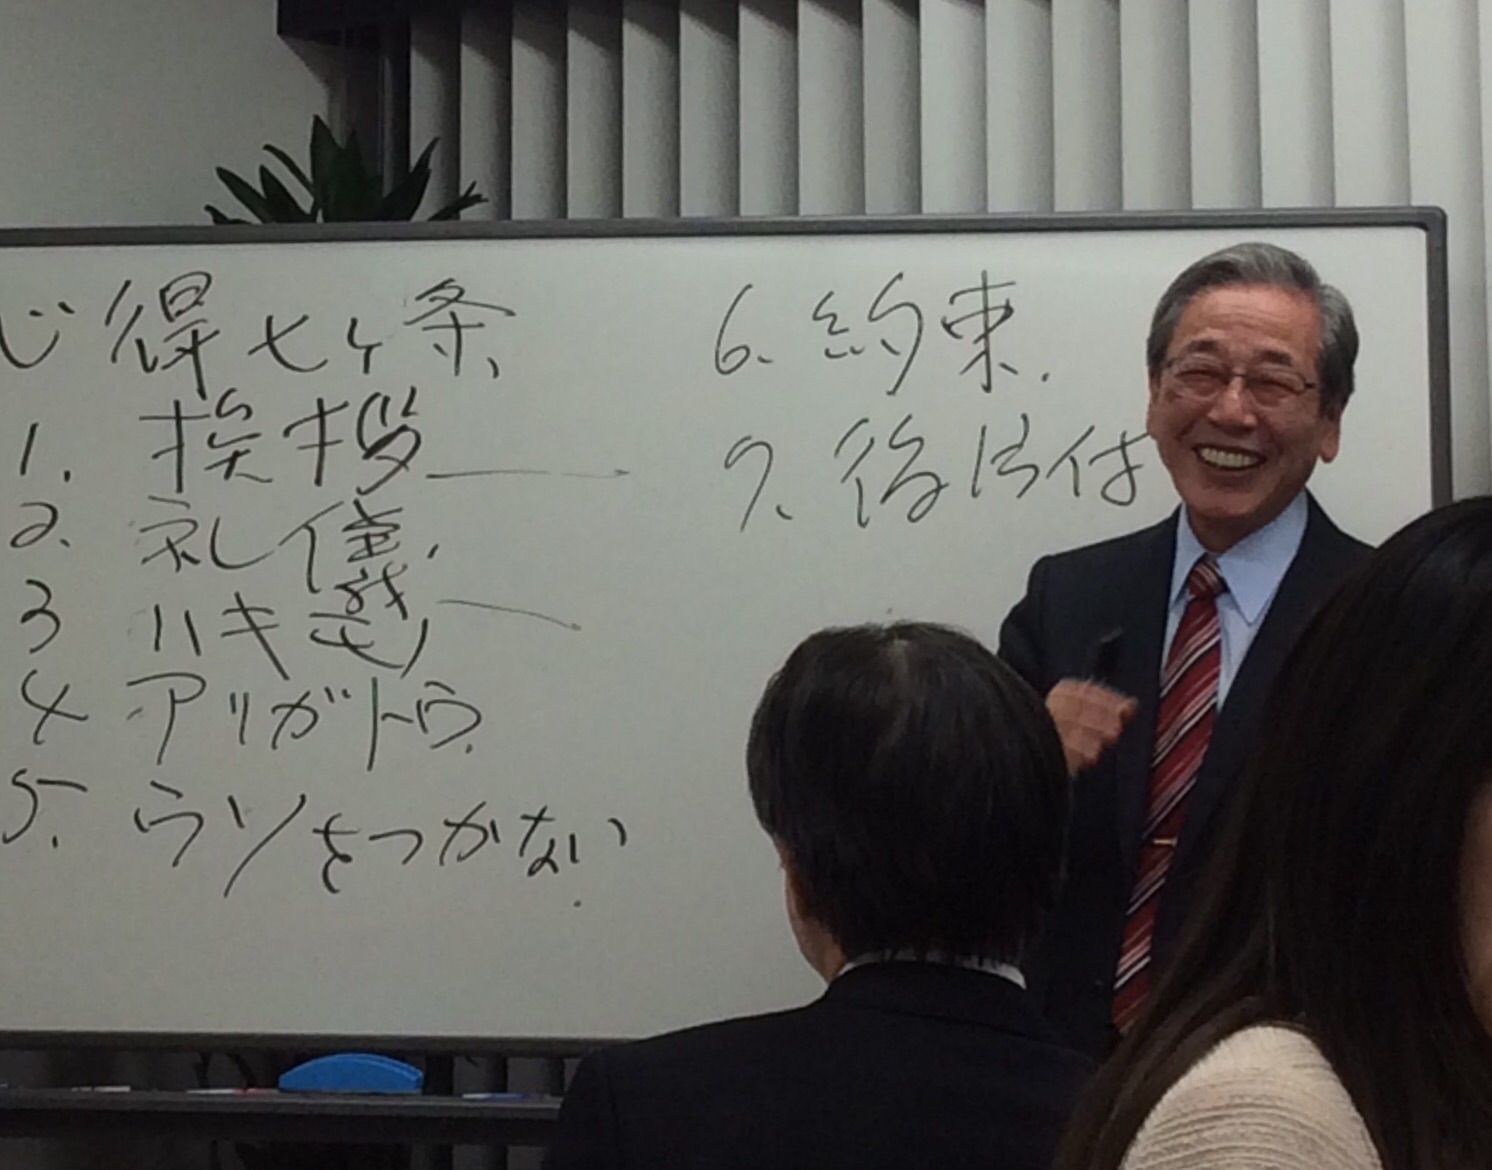 心得七ヶ条
1. 挨拶
2. 礼儀.
3 ハキモノ
4 アリガトウ.
5. ウソをつかない.
6. 約束.
7. 後片付